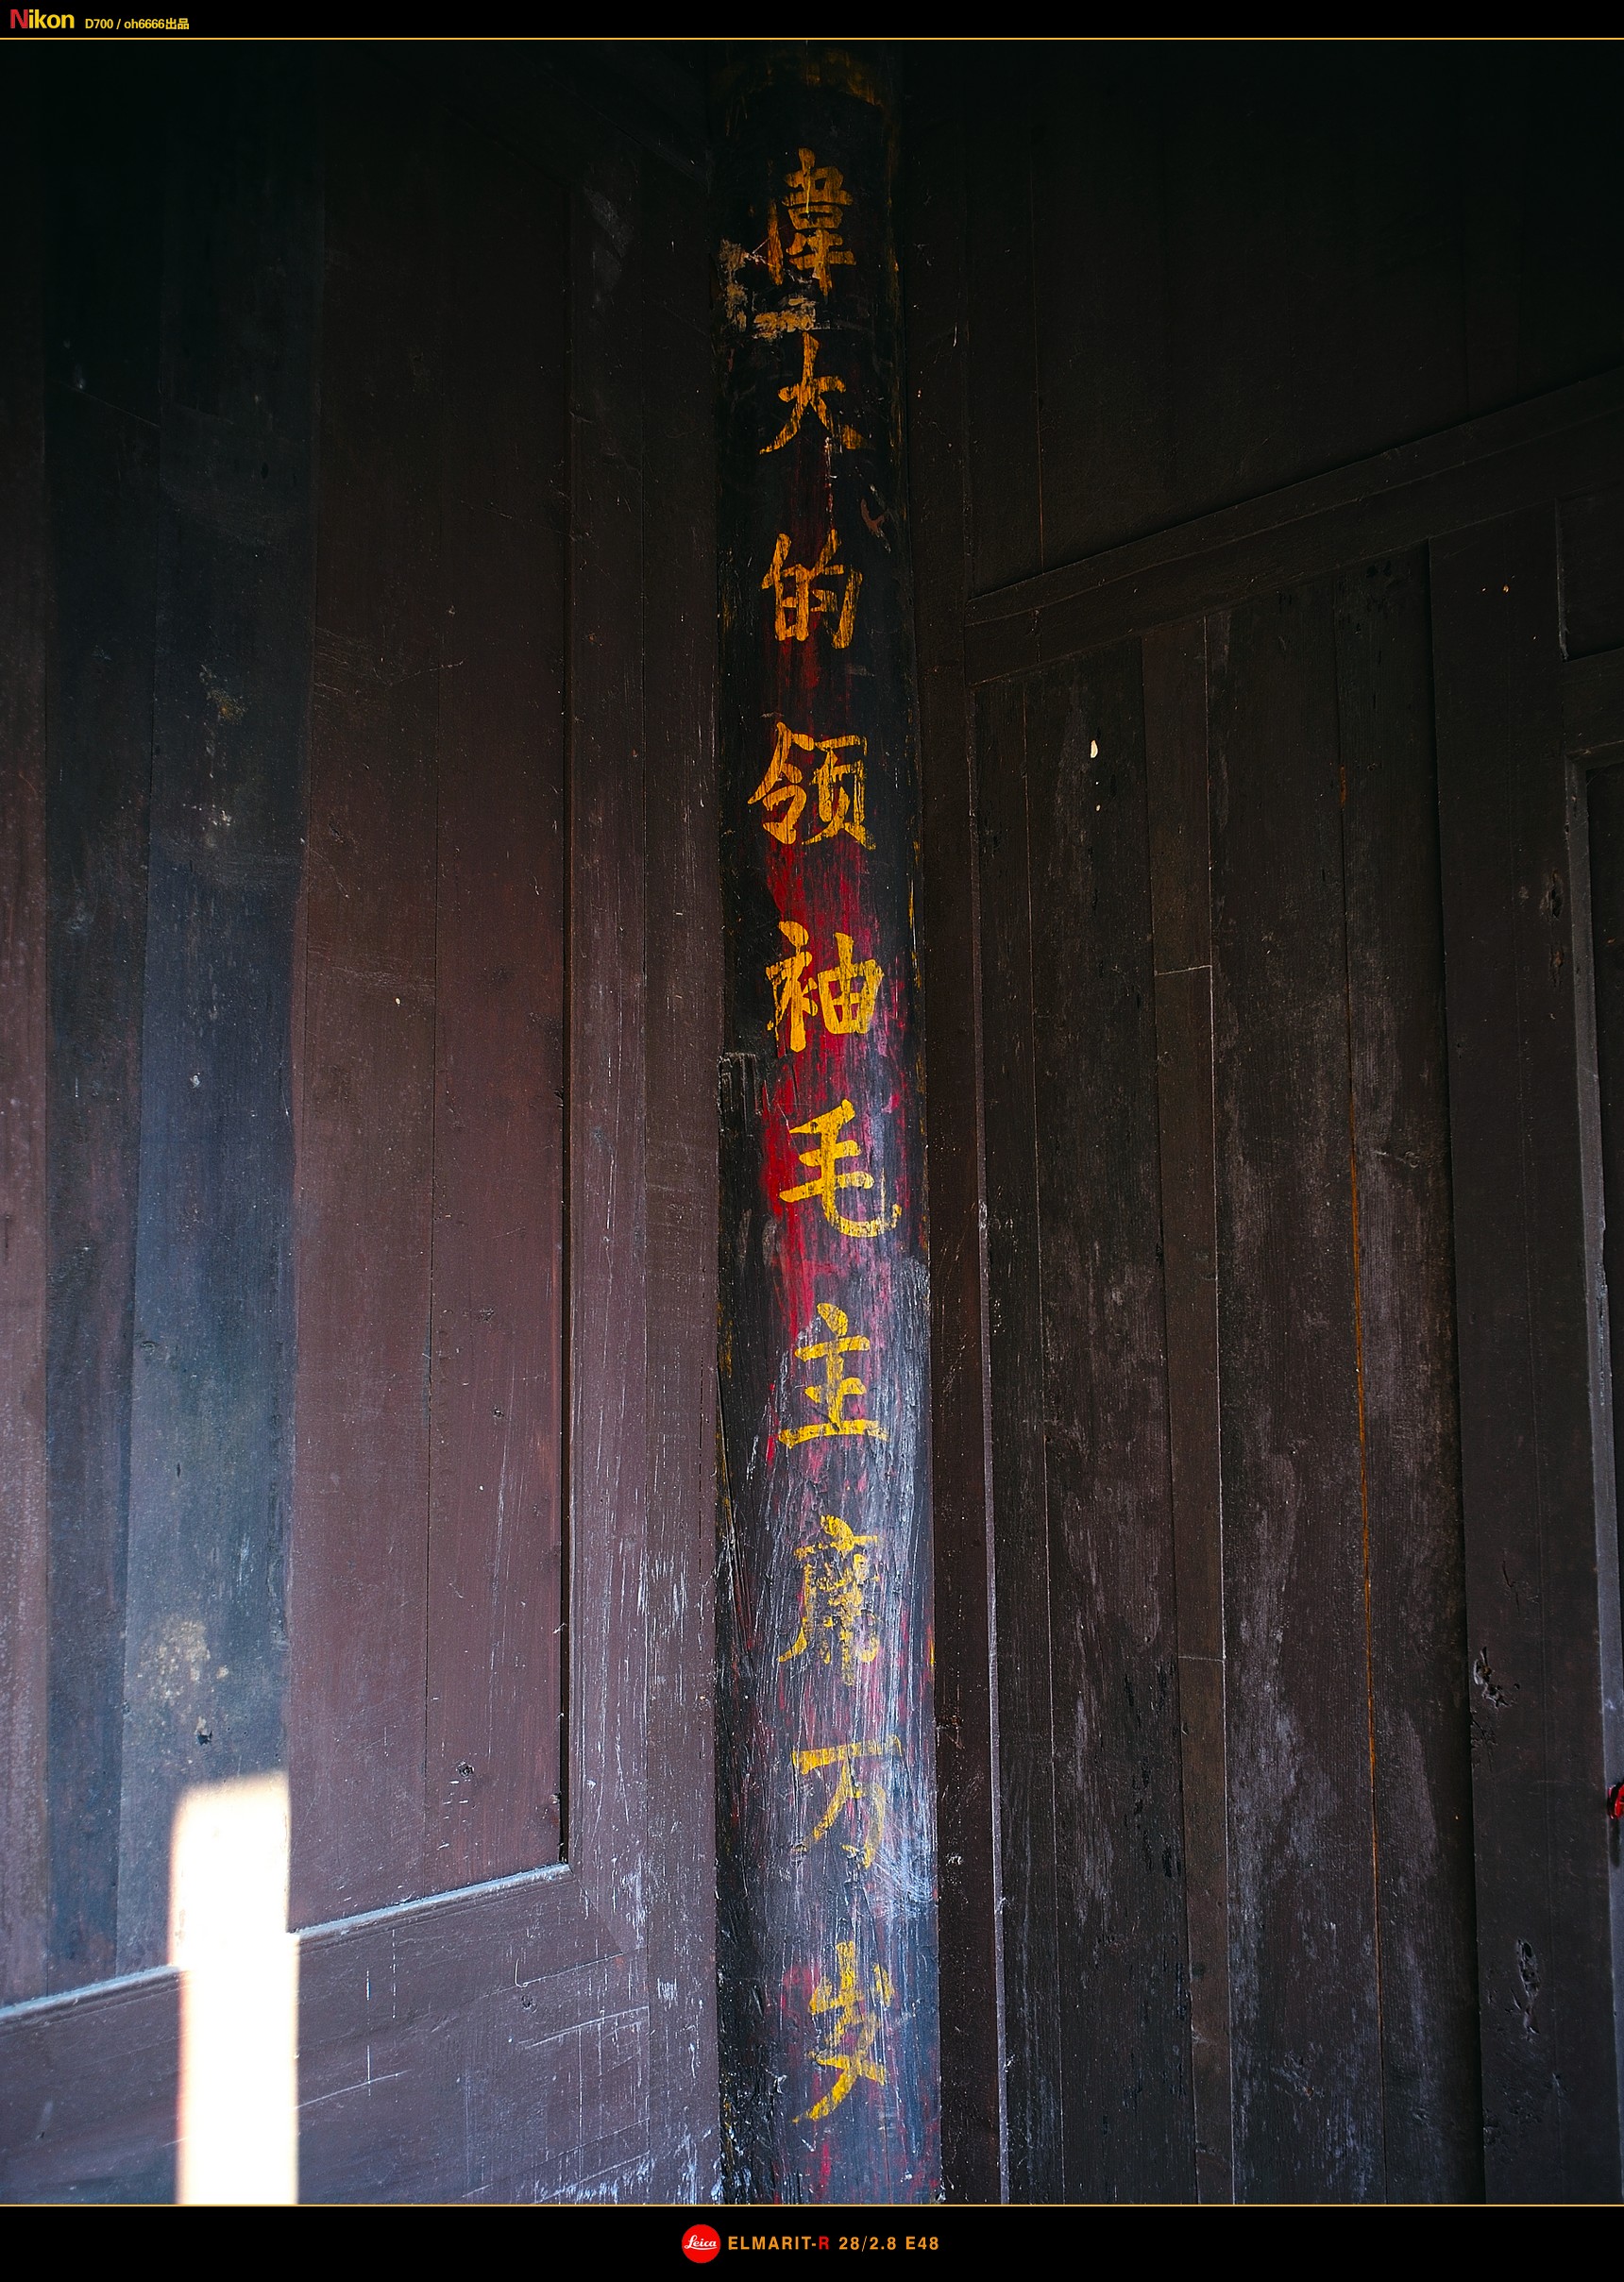 Nikon D700 / oh6666出品
偉大的领袖毛主席万岁
Leica ELMARIT-R 28/2.8 E48